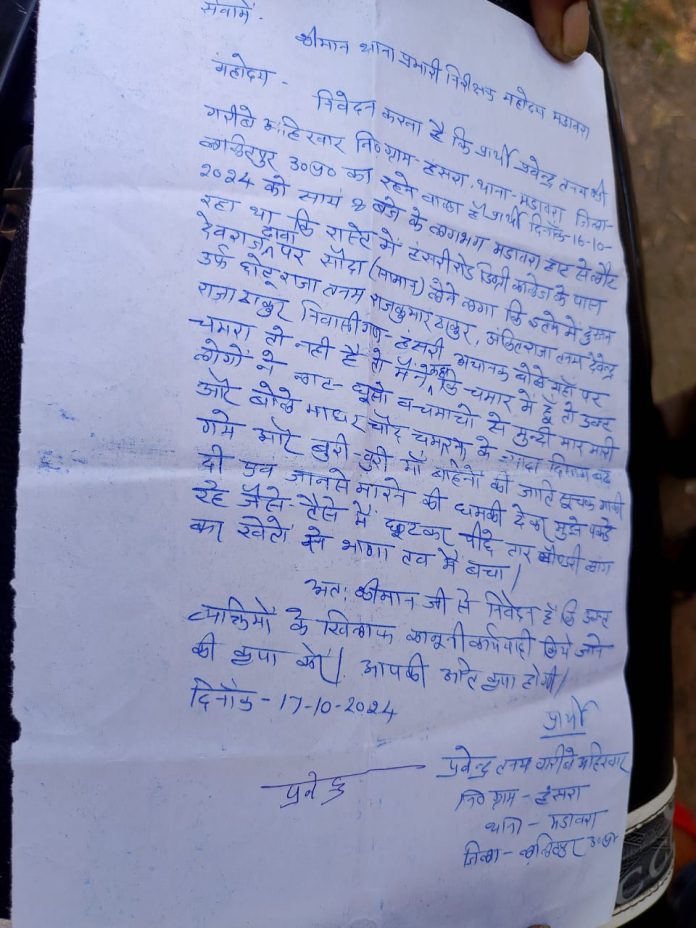 सेवामें.
श्रीमान थाना प्रभारी निरीक्षक महोदय मडावरा
महोदय -
निवेदन करना है कि प्रार्थी प्रवेन्द्र तनय श्री
गरीबे अहिरवार नि० ग्राम- हंसरा, थाना- मडावरा जिला-
ललितपुर उ०प्र० का रहने वाला हूँ प्रार्थी दिनाँक-16-10-
2024 को सायं 8 बजे के लगभग मडावरा हाट से लौट
रहा था कि रास्ते में हंसरी रोड डिग्री कालेज के पास
देवराज ढावा पर सौदा (सामान) लेने लगा कि इतने में
उर्फ छोटू राजा तनय राजकुमार ठाकुर, अंकित राजा तनय देवेन्द्र
राजा ठाकुर निवासीगण- हंसरी अचानक बोले यहाँ पर
चमरा तो नही है तो मैंने कहा कि- चमार में हूँ तो उक्त
लोगों ने लात- घूसो व चमाचो से मारी
और बोले मादर चोद चमरन के दिमाग बढ
गये और बुरी-बुरी माँ बहिनों की जाति सूचक गाली
दी एवं जानसे मारने की धमकी देकर मुझे पकडे
रहे जैसे- तैसे में छूटकर पीछे तार लांग
कर खेतों से भागा तब में बचा।
अतः श्रीमान जी से निवेदन है कि उक्त
व्यक्तियों के खिलाफ कानूनी कार्यवाही किये जाने
की कृपा करें। आपकी अति कृपा होगी।
दिनाँक - 17-10-2024
प्रार्थी
प्रवेन्द्र तनय गरीबे अहिरवार
नि० ग्राम - हंसरा
थाना - मडावरा
जिला - ललितपुर उ०प्र०
प्रवेन्द्र